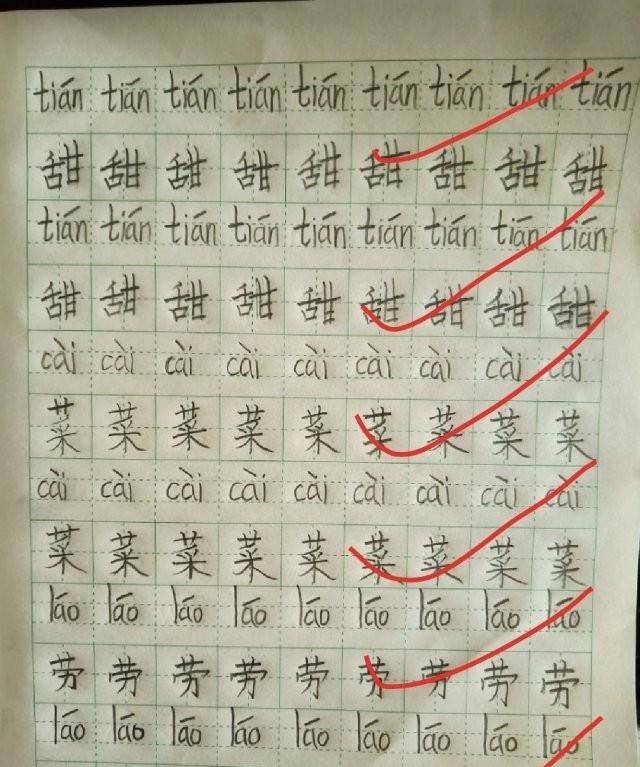 tián tián tián tián tián tián tián tián tián
甜 甜 甜 甜 甜 甜 甜 甜 甜
tián tián tián tián tián tián tián tián tián
甜 甜 甜 甜 甜 甜 甜 甜 甜
cài cài cài cài cài cài cài cài cài
菜 菜 菜 菜 菜 菜 菜 菜 菜
cài cài cài cài cài cài cài cài cài
菜 菜 菜 菜 菜 菜 菜 菜 菜
láo láo láo láo láo láo láo láo láo
劳 劳 劳 劳 劳 劳 劳 劳 劳
láo láo láo láo láo láo láo láo láo